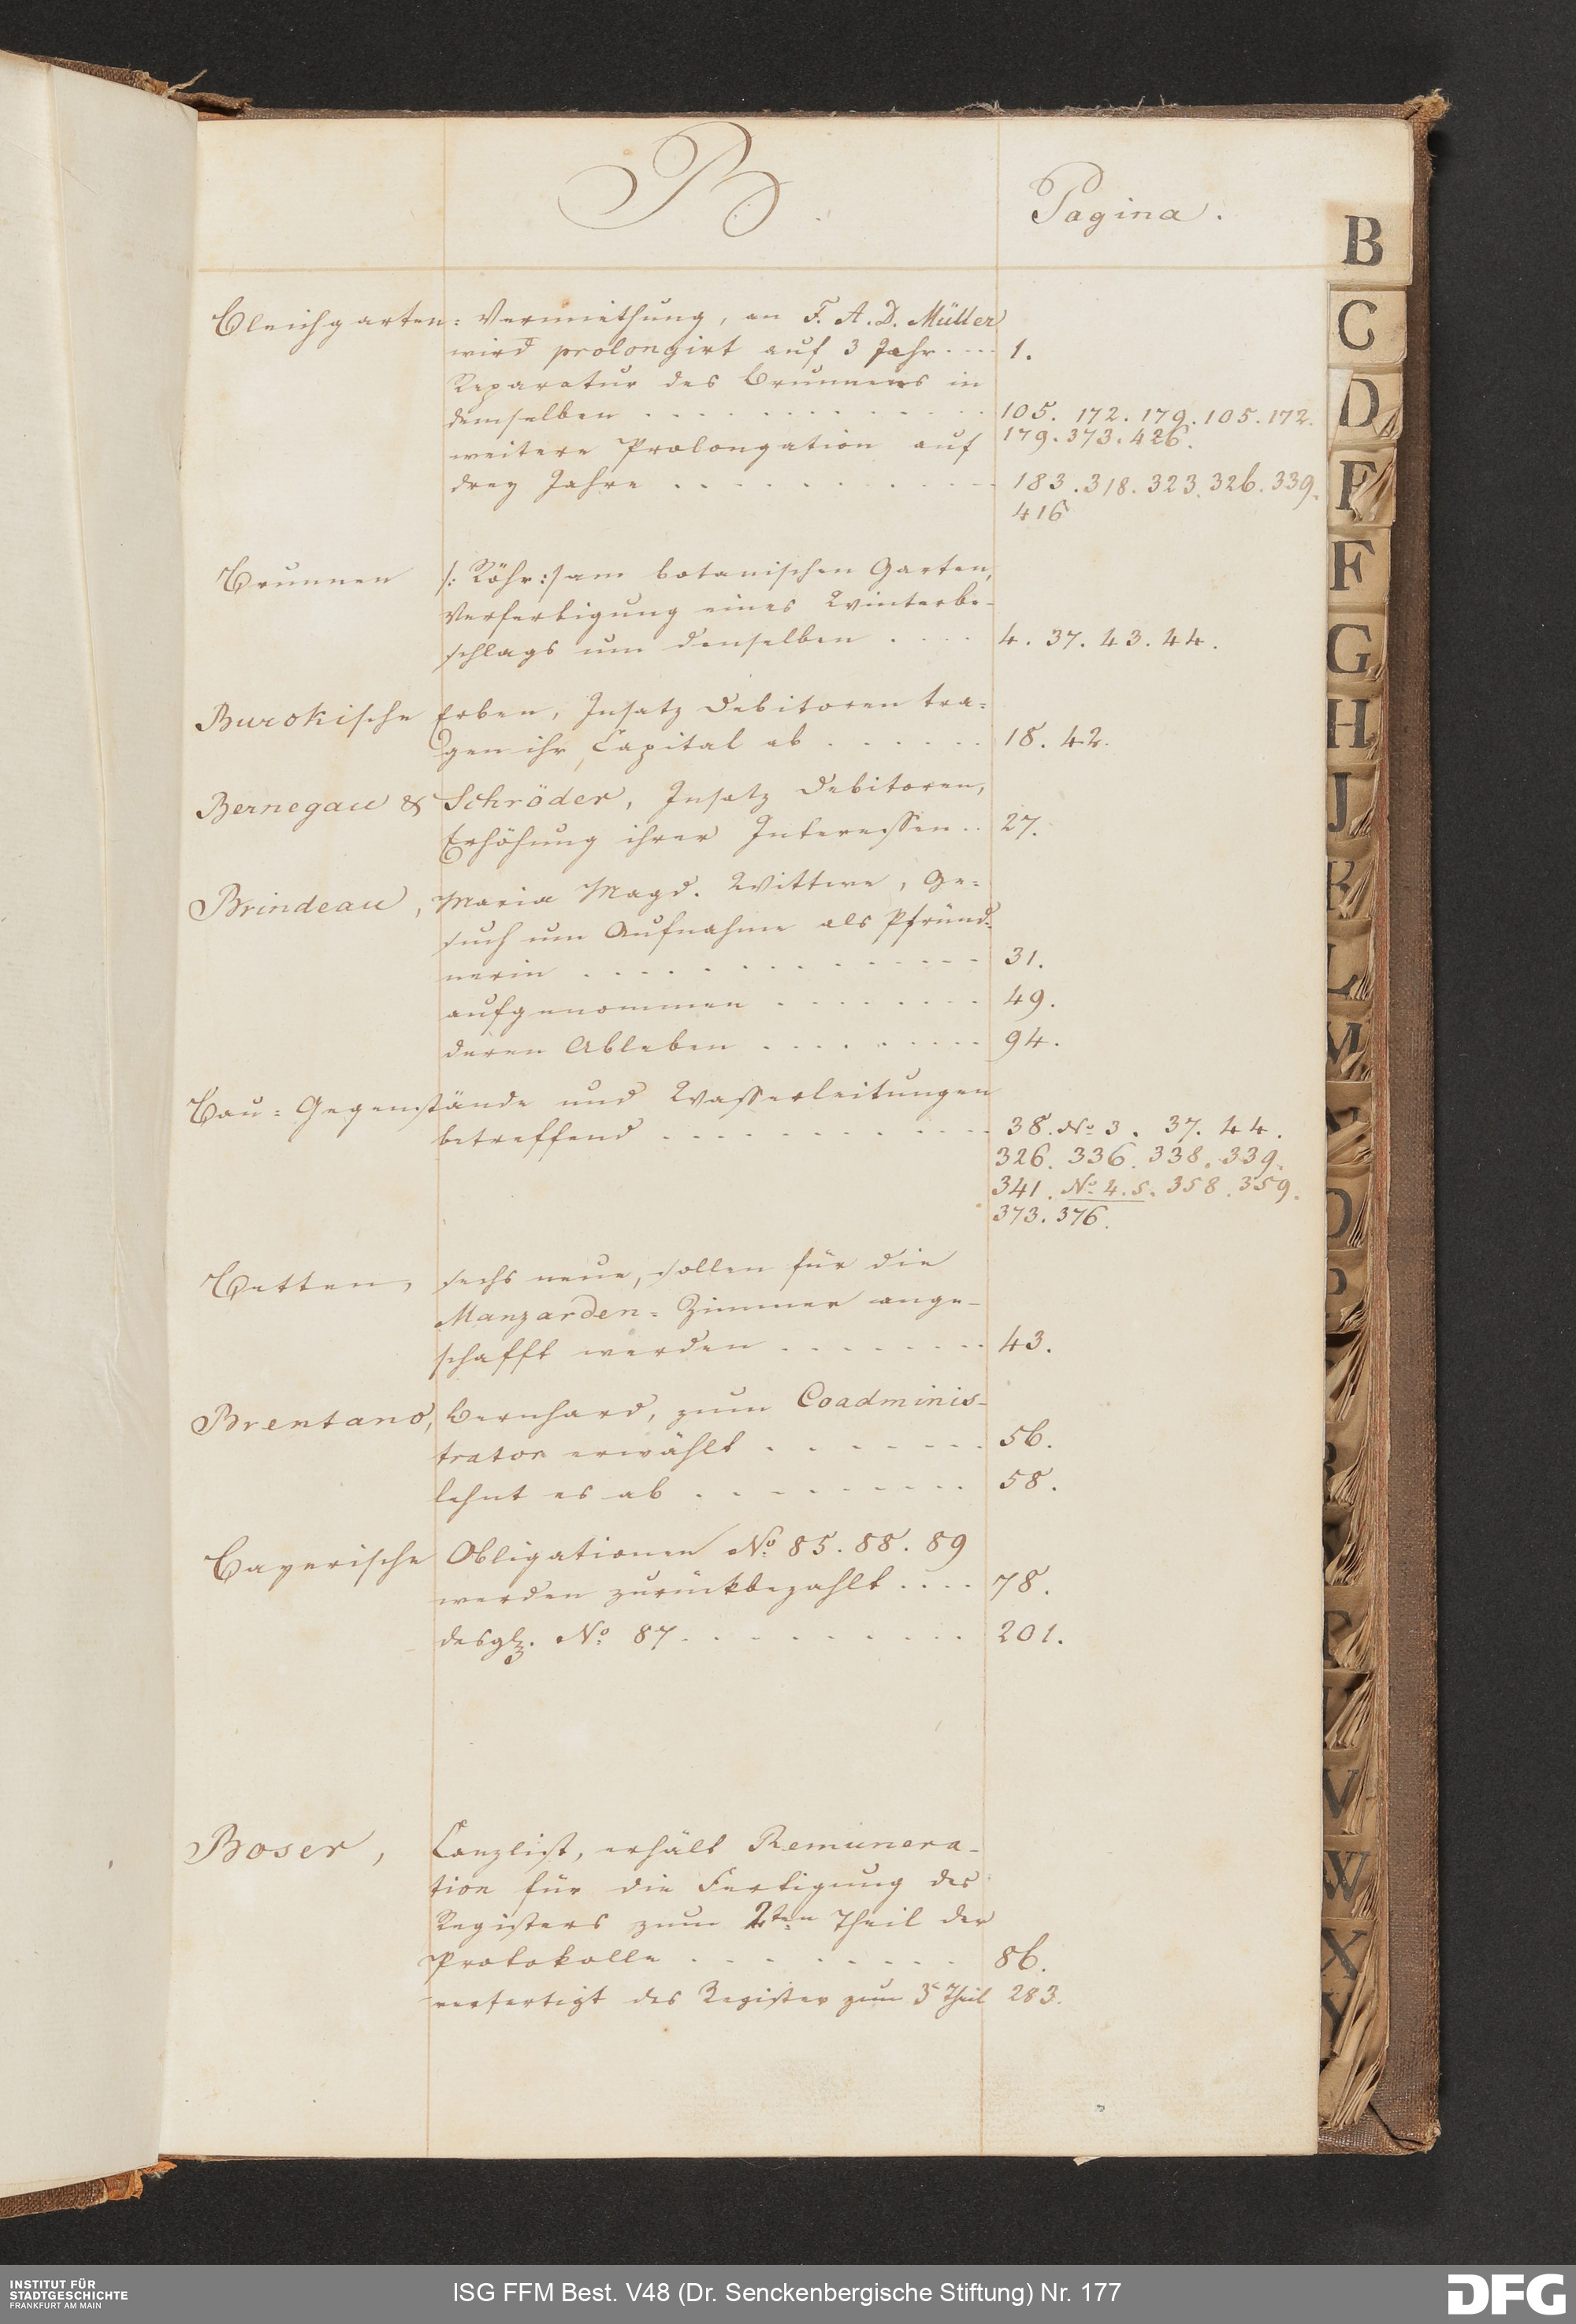 B.
Pagina.
Bleichgarten = Vermiethung, an F. A. D. Müller
wird prolongirt auf 3 Jahr .... 1.
Reparatur des Brunnens in
demselben . . . . . . . . . . . 105. 172. 179. 105. 172.
179. 373. 426.
weitere Prolongation auf
drey Jahre . . . . . . . . . . . 183. 318. 323. 326. 339.
416
Brunnen /: Röhr :/ am botanischen Garten,
Verfertigung eines Winterbe-
schlags um denselben . . . . 4. 37. 43. 44.
Burokische Erben, Insatz Debitoren tra=
gen ihr Capital ab . . . . . . 18. 42.
Bernegau & Schröder, Insatz Debitoren,
Erhöhung ihrer Interessen .. 27.
Brindeau, Maria Magd. Wittwe, Ge=
such um Aufnahme als Pfründ=
nerin . . . . . . . . . . . . . 31.
aufgenommen . . . . . . . . 49.
deren Ableben . . . . . . . . . 94.
Bau = Gegenstände und Wasserleitungen
betreffend . . . . . . . . . . . 38. No 3. 37. 44.
326. 336. 338. 339.
341. No 4. 5. 358. 359.
373. 376.
Betten, sechs neue, sollen für die
Manzarden = Zimmer ange-
schafft werden . . . . . . . . 43.
Brentano, Bernhard, zum Coadminis-
trator erwählt . . . . . . . . 56.
lehnt es ab . . . . . . . . . . 58.
Bayerische Obligationen No 85. 88. 89
werden zurückbezahlt .... 78.
desglz. No 87 . . . . . . . . . 201.
Boser, Canzlist, erhält Remunera-
tion für die Fertigung des
Registers zum 2ten Theil der
Protokolle . . . . . . . . 86.
verfertigt das Register zum 3t Theil 283.
B
C
D
E
F
G
H
J
K
L
M
N
O
P
R
T
V
W
X
Y
INSTITUT FÜR
STADTGESCHICHTE
FRANKFURT AM MAIN
ISG FFM Best. V48 (Dr. Senckenbergische Stiftung) Nr. 177
DFG